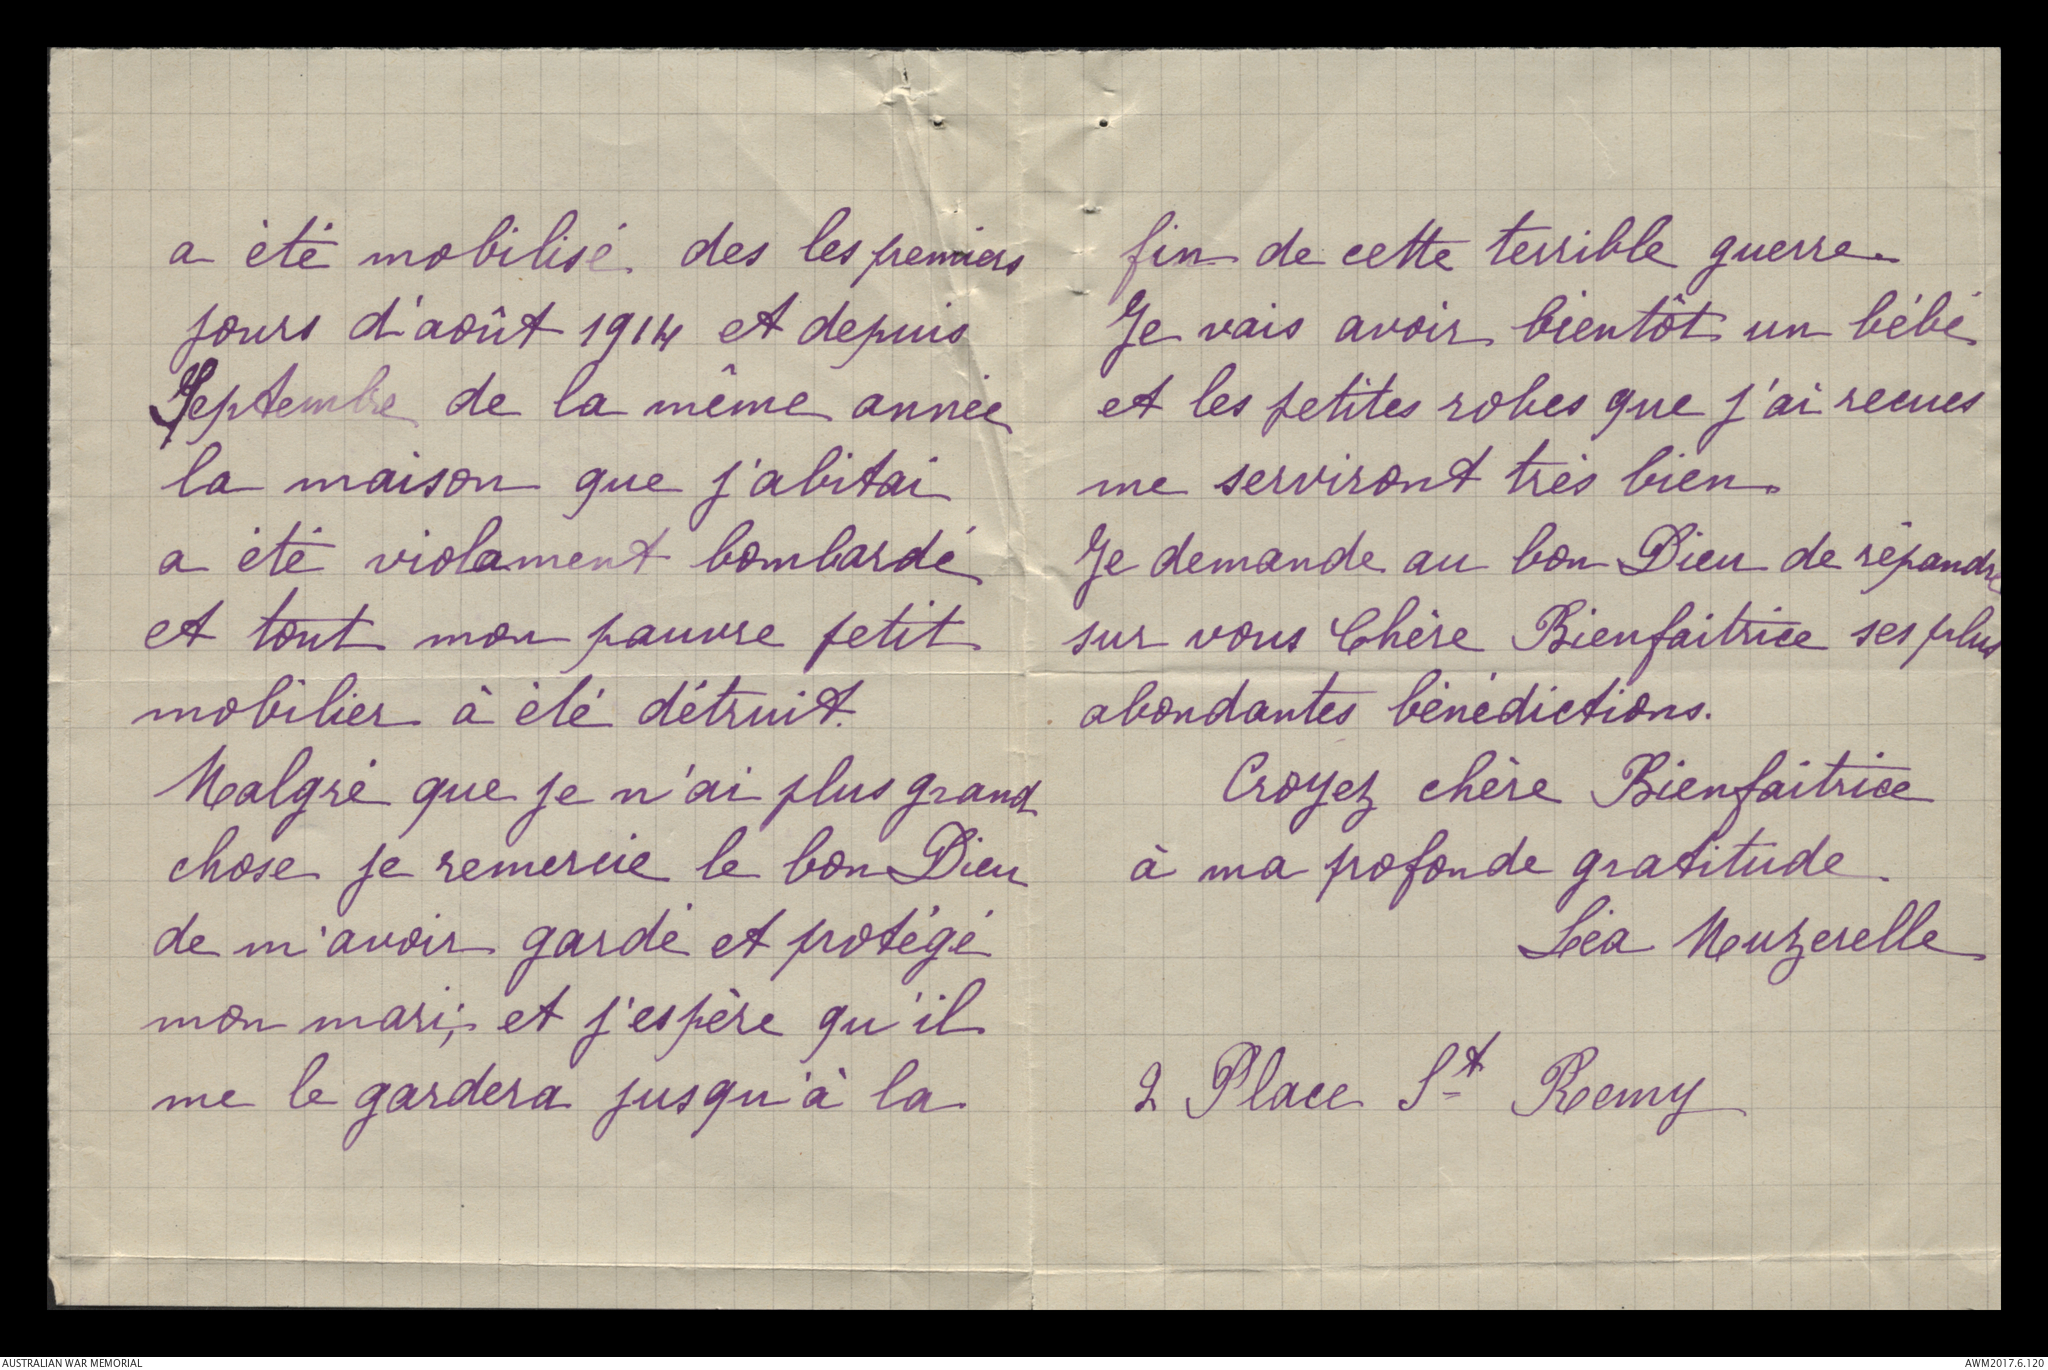 a été mobilisé des les premiers
jours d'août 1914 et depuis
Septembre de la même année
la maison que j'abitai
a été violament bombardé
et tout mon pauvre petit
mobilier à été détruit.
Malgré que je n'ai plus grand
chose je remercie le bon Dieu
de m'avoir gardé et protégé
mon mari, et j'espère qu'il
me le gardera jusqu'à la
fin de cette terrible guerre.
Je vais avoir bientôt un bébé
et les petites robes que j'ai recues
me serviront très bien.
Je demande au bon Dieu de répandre
sur vous Chère Bienfaitrice ses plus
abondantes bénédictions.
Croyez chère Bienfaitrice
à ma profonde gratitude.
Léa Muzerelle
2 Place St Remy
AUSTRALIAN WAR MEMORIAL
AWM2017.6.120